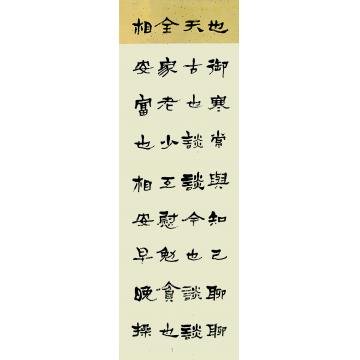 也御寒常與知己聊聊
天古也談談今也談談
全家老少互慰勉貧也
相安富也相安早晚操